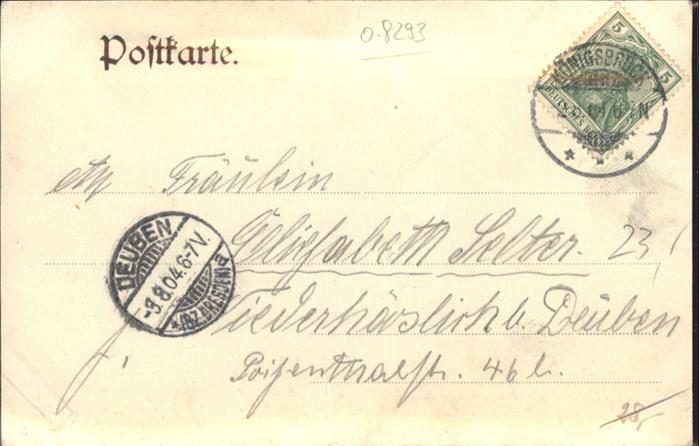 O-8293
Postkarte.
5
5
KÖNIGSBRÜCK
DEUTSCHES REICH
6-7N
An Fräulein
Elisabeth Selter. 23,
DEUBEN
-9.8.04.6-7V.
*(BZ.DRESDEN)a
Niederhäslich b. Deuben
Poisenthalstr. 46 b.
28,-